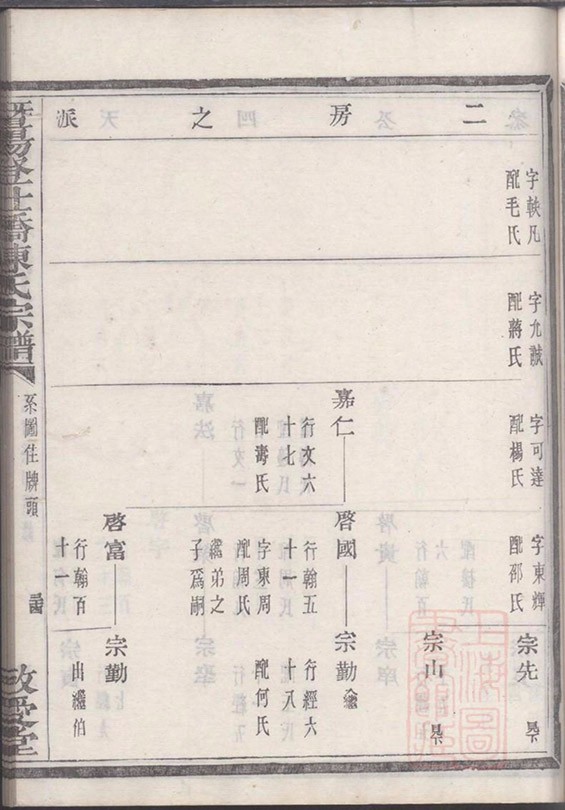 二房之派
字軼凡
配毛氏
字允誠
配蔣氏
字可達
配楊氏
字東輝
配邵氏
宗先
宗山
嘉仁
行文六
十七
配壽氏
啓國
行翰五
十一
字東周
配周氏
繼弟之
子爲嗣
宗勤
行經六
十八
配何氏
啓富
行翰百
十一
宗勤
出繼伯
暨陽登仕橋陳氏宗譜
系圖住牌頭
敬愛堂
上海圖書館藏